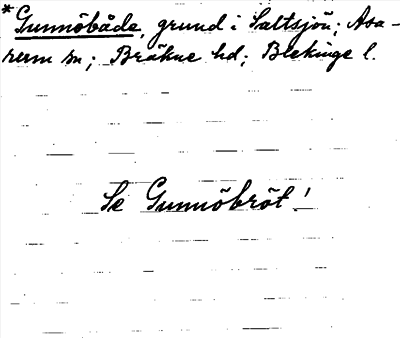 *Gunnöbåde, grund i Saltsjön; Asa-
rum sn; Bräkne hd; Blekinge l.
Se Gunnöbröt!